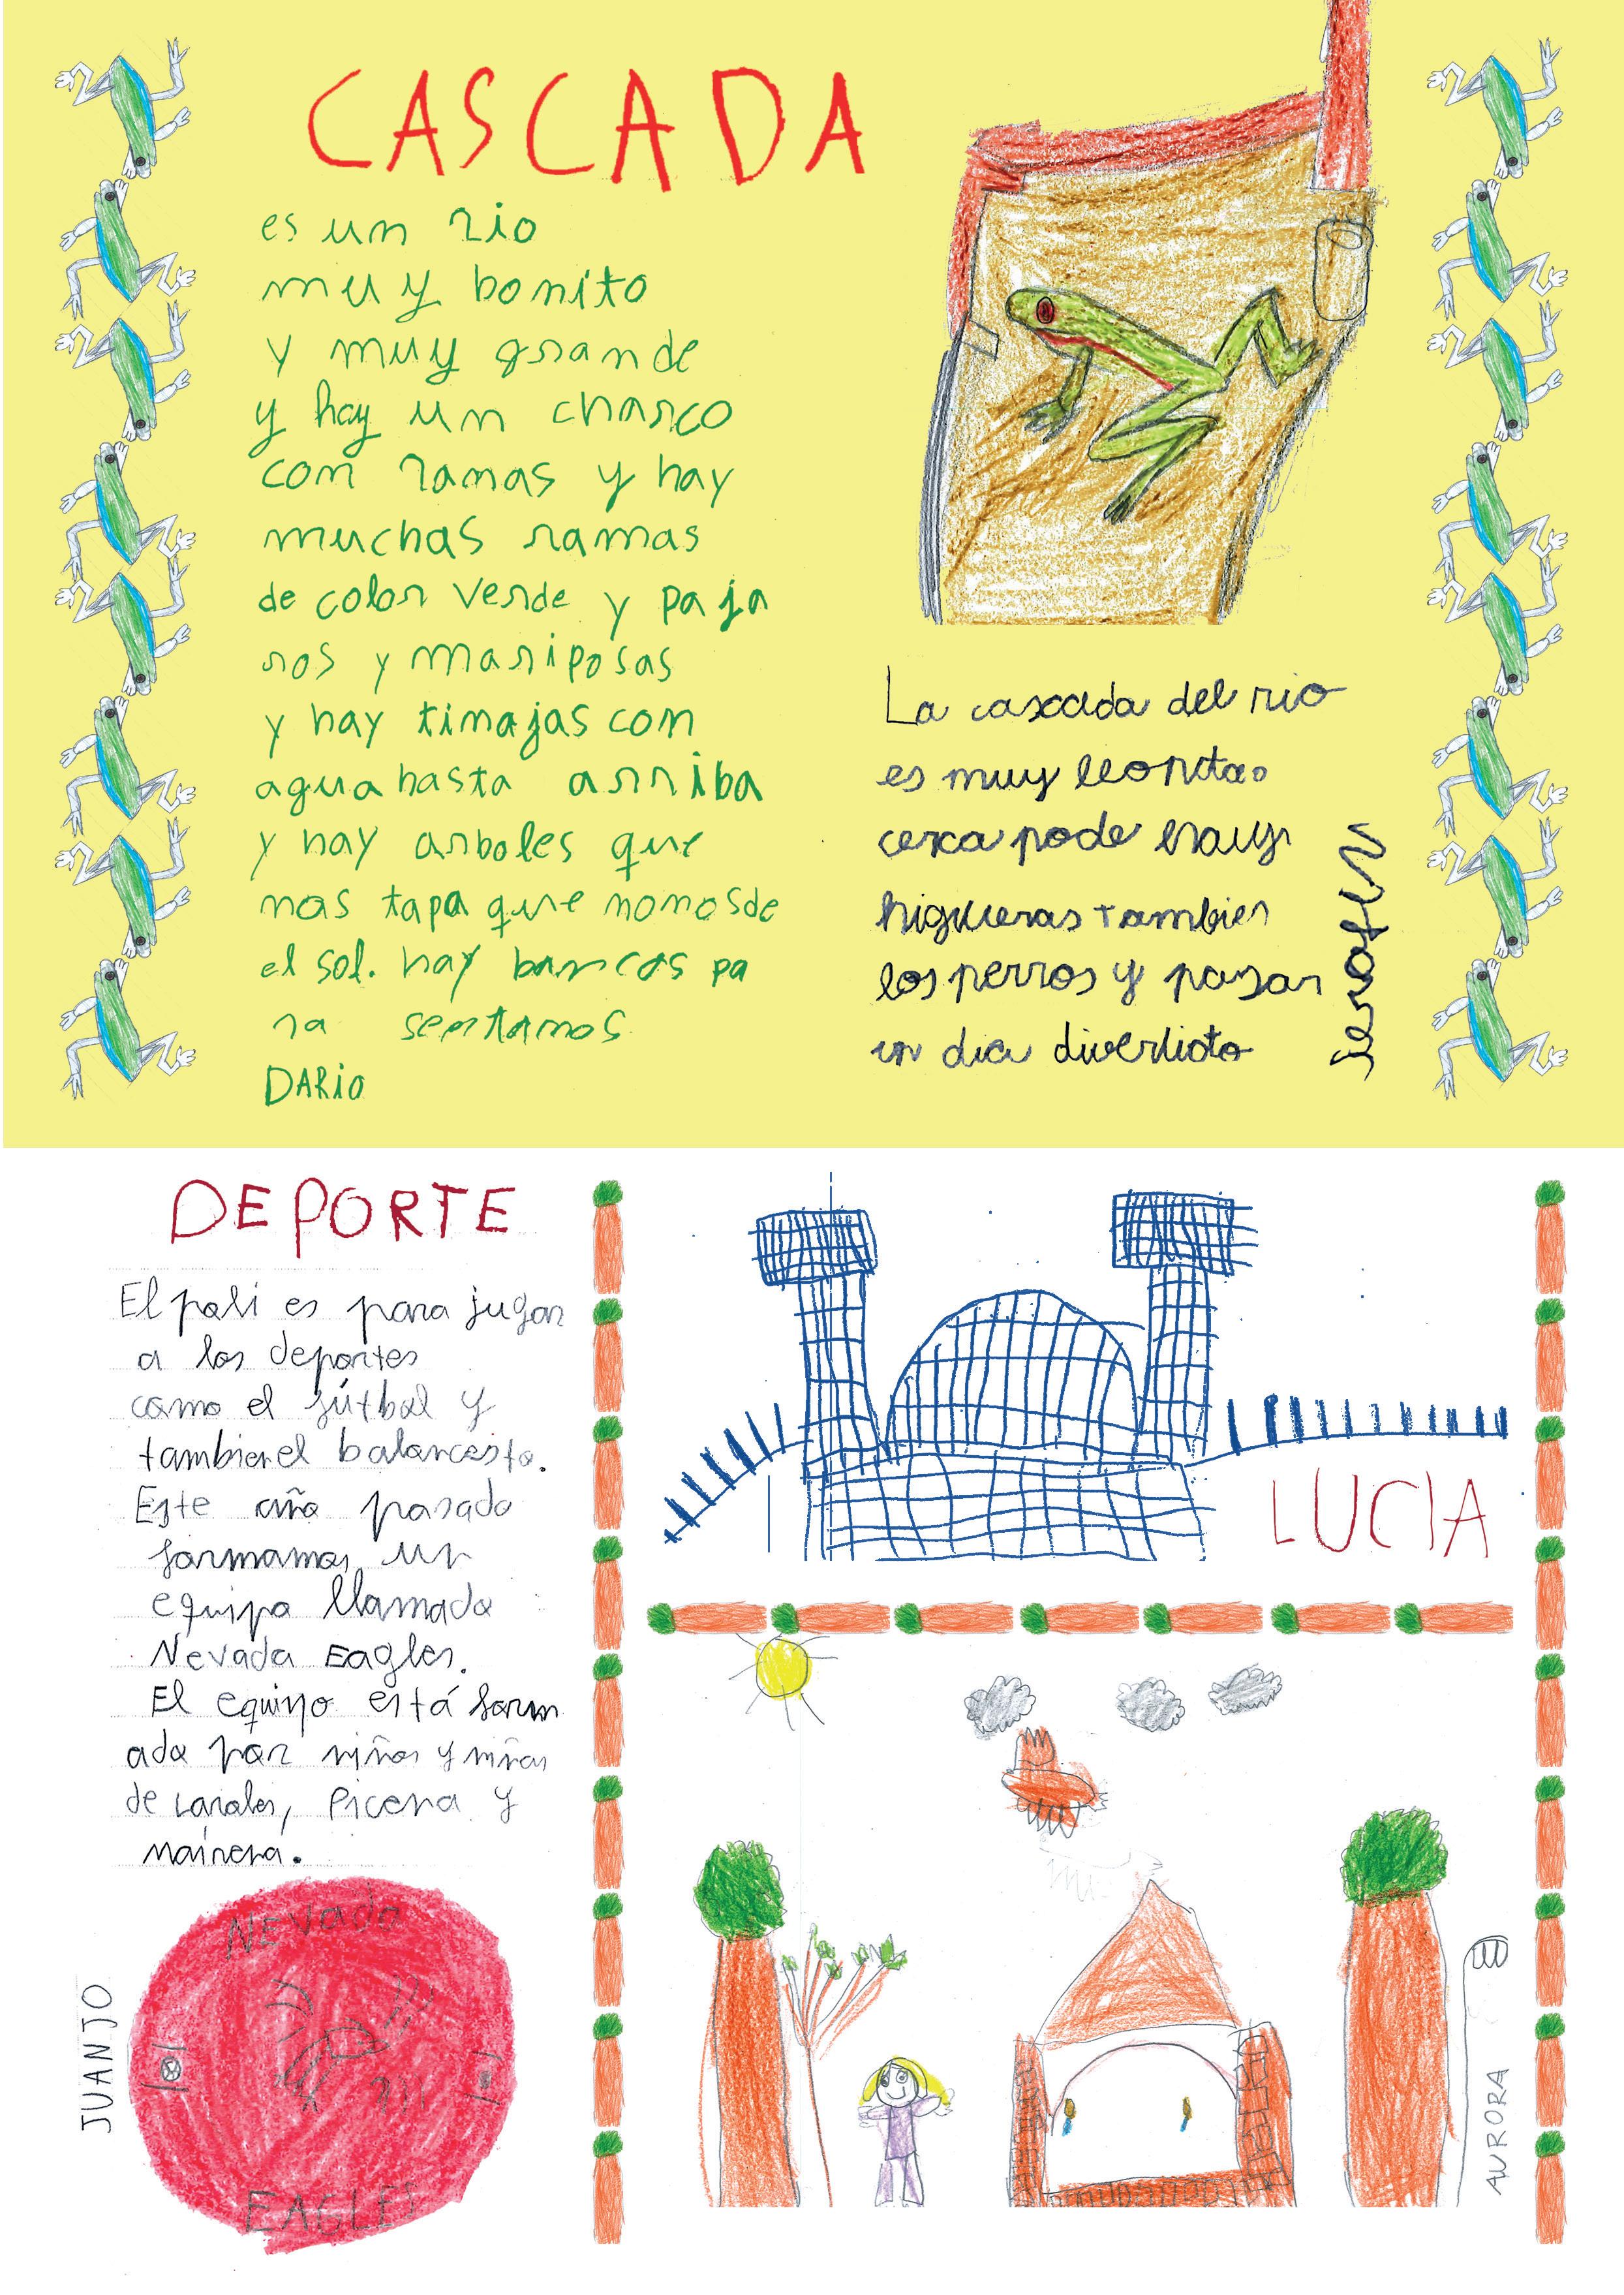 CASCADA
es un rio
muy bonito
y muy grande
y hay un charco
con ramas y hay
muchas ramas
de color verde y paja
ros y mariposas
y hay timajas con
agua hasta arriba
y hay arboles que
nos tapa que nonosde
el sol. hay bancos pa
ra sentarnos
DARiO
La cascada del rio
es muy
cerca pode
higueras tambien
los perros y pasar
un dia divertido
DEPORTE
El poli es para jugar
a los deportes
como el fútbol y
tambien el baloncesto.
Este año pasado
formamos un
equipo llamado
Nevada Eagles.
El equipo está form
ado por niños y niñas
de Laroles, Picena y
Mairena.
NEVada
EAGLES
JUANJO
LUCIA
AURORA